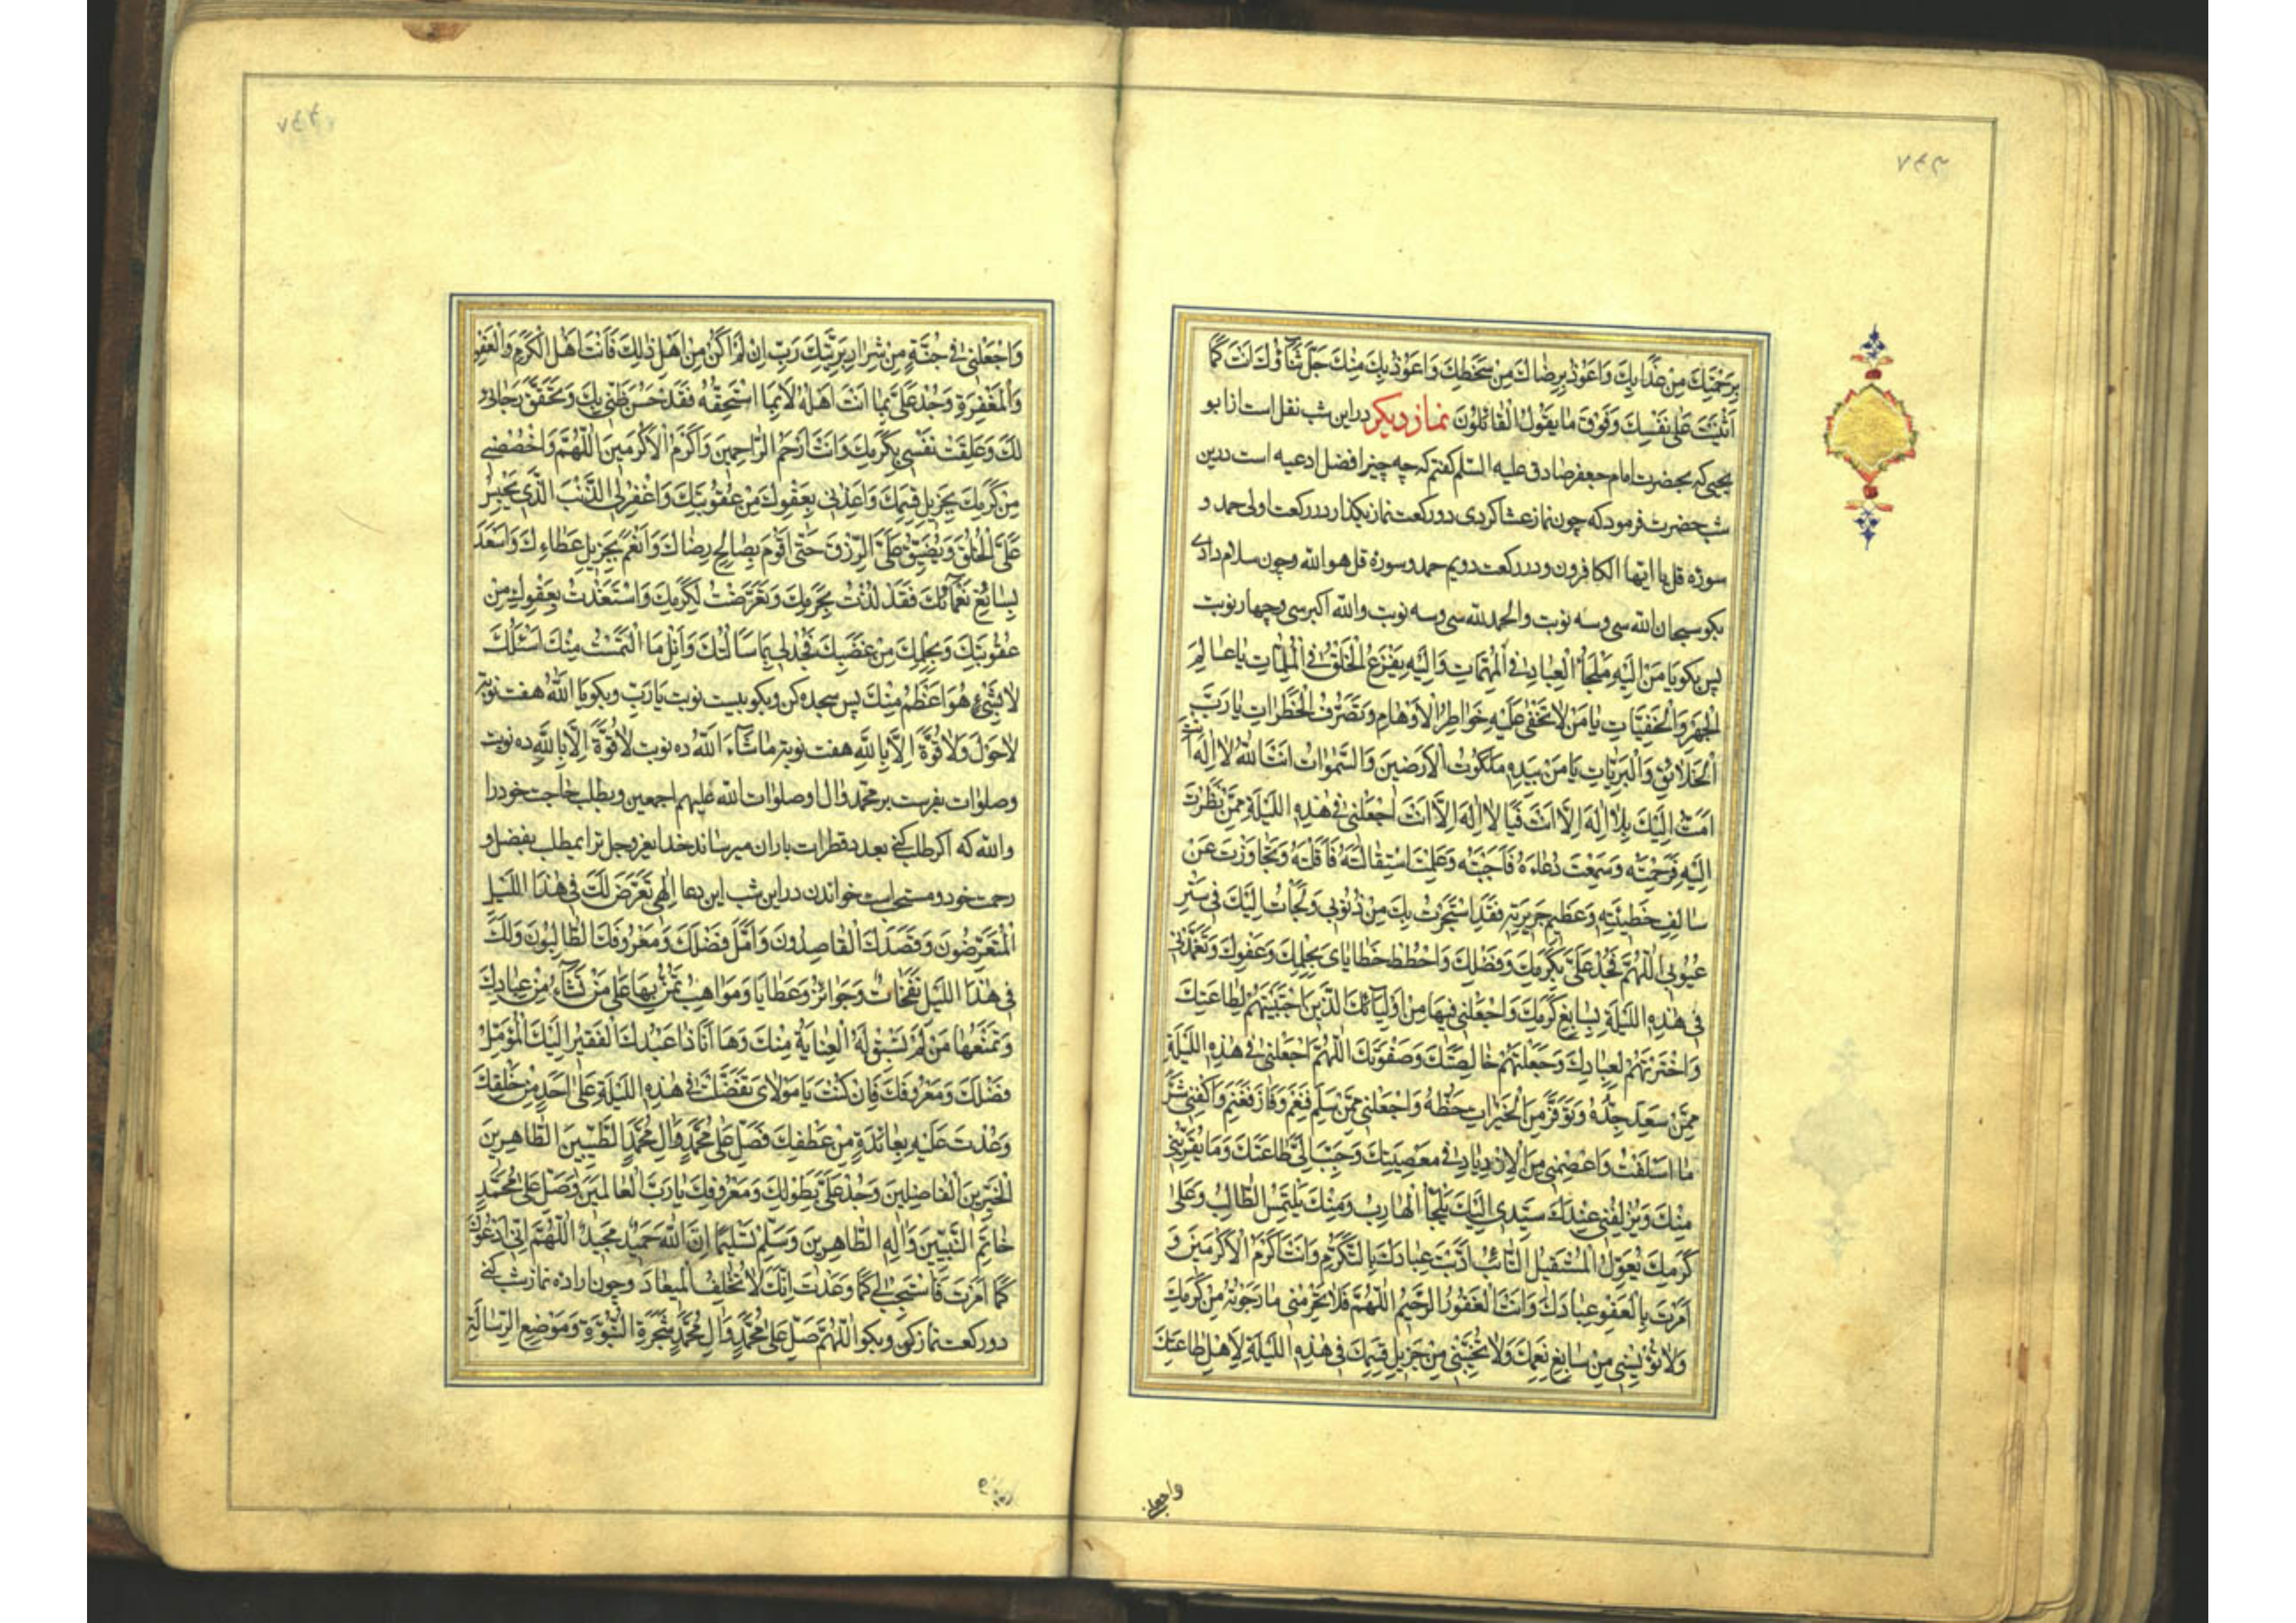 ۷۴۳
بِرَحْمَتِكَ مِنْ عَذَابِكَ وَاَعُوذُ بِرِضَاكَ مِنْ سَخَطِكَ وَاَعُوذُ بِكَ مِنْكَ جَلَّ ثَنَاؤُكَ اَنْتَ كَمَا
اَثْنَيْتَ عَلٰى نَفْسِكَ وَفَوْقَ مَا يَقُولُ الْقَائِلُونَ نماز ديكر دراين شب نقل است از ابو
يحيى كه بحضرت امام جعفر صادق عليه السّلم كفتم كه چه چيز افضل ادعيه است درين
شب حضرت فرمود كه چون نماز عشا كردى دو ركعت نماز بكذار در ركعت اولى حمد و
سورۀ قل يا ايّها الكافرون و در ركعت دويم حمد و سورۀ قل هو الله وچون سلام دادى
بكو سبحان الله سى وسه نوبت والحمد لله سى وسه نوبت والله اكبر سى وچهار نوبت
پس بكو يَا مَنْ اِلَيْهِ مَلْجَأُ الْعِبَادِ فِى الْمُهِمَّاتِ وَاِلَيْهِ يَفْزَعُ الْخَلْقُ فِى الْمُلِمَّاتِ يَا عَالِمَ
الْجَهْرِ وَالْخَفِيَّاتِ يَا مَنْ لَا تَخْفٰى عَلَيْهِ خَوَاطِرُ الْاَوْهَامِ وَتَصَرُّفُ الْخَطَرَاتِ يَا رَبَّ
الْخَلَائِقِ وَالْبَرِيَّاتِ يَا مَنْ بِيَدِهِ مَلَكُوتُ الْاَرَضِينَ وَالسَّمٰوَاتِ اَنْتَ اللهُ لَا اِلٰهَ اِلَّا اَنْتَ
اَمُتُّ اِلَيْكَ بِلَا اِلٰهَ اِلَّا اَنْتَ فَيَا لَا اِلٰهَ اِلَّا اَنْتَ اجْعَلْنِى فِى هٰذِهِ اللَّيْلَةِ مِمَّنْ نَظَرْتَ
اِلَيْهِ فَرَحِمْتَهُ وَسَمِعْتَ دُعَاءَهُ فَاَجَبْتَهُ وَعَلِمْتَ اسْتِقَالَتَهُ فَاَقَلْتَهُ وَتَجَاوَزْتَ عَنْ
سَالِفِ خَطِيئَتِهِ وَعَظِيمِ جَرِيرَتِهِ فَقَدِ اسْتَجَرْتُ بِكَ مِنْ ذُنُوبِى وَلَجَأْتُ اِلَيْكَ فِى سَتْرِ
عُيُوبِى اللّٰهُمَّ فَجُدْ عَلَىَّ بِكَرَمِكَ وَفَضْلِكَ وَاحْطُطْ خَطَايَاىَ بِحِلْمِكَ وَعَفْوِكَ وَتَغَمَّدْنِى
فِى هٰذِهِ اللَّيْلَةِ بِسَابِغِ كَرَمِكَ وَاجْعَلْنِى فِيهَا مِنْ اَوْلِيَائِكَ الَّذِينَ اجْتَبَيْتَهُمْ لِطَاعَتِكَ
وَاخْتَرْتَهُمْ لِعِبَادِكَ وَجَعَلْتَهُمْ خَالِصَتَكَ وَصَفْوَتَكَ اللّٰهُمَّ اجْعَلْنِى فِى هٰذِهِ اللَّيْلَةِ
مِمَّنْ سَعِدَ جَدُّهُ وَتَوَفَّرَ مِنَ الْخَيْرَاتِ حَظُّهُ وَاجْعَلْنِى مِمَّنْ سَلِمَ فَنَعِمَ وَفَازَ فَغَنِمَ وَاكْفِنِى شَرَّ
مَا اَسْلَفْتُ وَاعْصِمْنِى مِنَ الْاِزْدِيَادِ فِى مَعْصِيَتِكَ وَحَبِّبْ اِلَىَّ طَاعَتَكَ وَمَا يُقَرِّبُنِى
مِنْكَ وَيُزْلِفُنِى عِنْدَكَ سَيِّدِى اِلَيْكَ يَلْجَأُ الْهَارِبُ وَمِنْكَ يَلْتَمِسُ الطَّالِبُ وَعَلٰى
كَرَمِكَ يُعَوِّلُ الْمُسْتَقِيلُ التَّائِبُ اَدَّبْتَ عِبَادَكَ بِالتَّكَرُّمِ وَاَنْتَ اَكْرَمُ الْاَكْرَمِينَ وَ
اَمَرْتَ بِالْعَفْوِ عِبَادَكَ وَاَنْتَ الْغَفُورُ الرَّحِيمُ اللّٰهُمَّ فَلَا تَحْرِمْنِى مَا رَجَوْتُ مِنْ كَرَمِكَ
وَلَا تُؤْيِسْنِى مِنْ سَابِغِ نِعَمِكَ وَلَا تُخَيِّبْنِى مِنْ جَزِيلِ قِسَمِكَ فِى هٰذِهِ اللَّيْلَةِ لِاَهْلِ طَاعَتِكَ
واجعلنى
۷۴۴
وَاجْعَلْنِى فِى جُنَّةٍ مِنْ شِرَارِ بَرِيَّتِكَ رَبِّ اِنْ لَمْ اَكُنْ مِنْ اَهْلِ ذٰلِكَ فَاَنْتَ اَهْلُ الْكَرَمِ وَالْعَفْوِ
وَالْمَغْفِرَةِ وَجُدْ عَلَىَّ بِمَا اَنْتَ اَهْلُهُ لَا بِمَا اَسْتَحِقُّهُ فَقَدْ حَسُنَ ظَنِّى بِكَ وَتَحَقَّقَ رَجَائِى
لَكَ وَعَلِقَتْ نَفْسِى بِكَرَمِكَ وَاَنْتَ اَرْحَمُ الرَّاحِمِينَ وَاَكْرَمُ الْاَكْرَمِينَ اللّٰهُمَّ وَاخْصُصْنِى
مِنْ كَرَمِكَ بِجَزِيلِ قِسَمِكَ وَاَعِذْنِى بِعَفْوِكَ مِنْ عُقُوبَتِكَ وَاغْفِرْ لِىَ الذَّنْبَ الَّذِى يَحْبِسُ
عَلَىَّ الْخُلُقَ وَيُضَيِّقُ عَلَىَّ الرِّزْقَ حَتّٰى اَقُومَ بِصَالِحِ رِضَاكَ وَاَنْعَمَ بِجَزِيلِ عَطَاءِكَ وَاَسْعَدَ
بِسَابِغِ نَعْمَائِكَ فَقَدْ لُذْتُ بِحَرَمِكَ وَتَعَرَّضْتُ لِكَرَمِكَ وَاسْتَعَذْتُ بِعَفْوِكَ مِنْ
عُقُوبَتِكَ وَبِحِلْمِكَ مِنْ غَضَبِكَ فَجُدْ لِى بِمَا سَاَلْتُكَ وَاَنِلْ مَا الْتَمَسْتُ مِنْكَ اَسْئَلُكَ
لَا بِشَىْءٍ هُوَ اَعْظَمُ مِنْكَ پس سجده كن و بكو بيست نوبت يَا رَبِّ و بكو يَا اَللهُ هفت نوبت
لَا حَوْلَ وَلَا قُوَّةَ اِلَّا بِاللهِ هفت نوبت مَا شَاءَ اللهُ ده نوبت لَا قُوَّةَ اِلَّا بِاللهِ ده نوبت
وصلوات بفرست بر محمد وال او صلوات الله عليهم اجمعين وبطلب حاجت خود را
والله كه اكر طلب كنى بعدد قطرات باران ميرساند خداى عز وجل ترا بمطلب بفضل و
رحمت خود و مستحب است خواندن دراين شب اين دعا اِلٰهِى تَعَرَّضَ لَكَ فِى هٰذَا اللَّيْلِ
الْمُتَعَرِّضُونَ وَقَصَدَكَ الْقَاصِدُونَ وَاَمَّلَ فَضْلَكَ وَمَعْرُوفَكَ الطَّالِبُونَ وَلَكَ
فِى هٰذَا اللَّيْلِ نَفَحَاتٌ وَجَوَائِزُ وَعَطَايَا وَمَوَاهِبُ تَمُنُّ بِهَا عَلٰى مَنْ تَشَاءُ مِنْ عِبَادِكَ
وَتَمْنَعُهَا مَنْ لَمْ تَسْبِقْ لَهُ الْعِنَايَةُ مِنْكَ وَهَا اَنَا ذَا عَبْدُكَ الْفَقِيرُ اِلَيْكَ الْمُؤَمِّلُ
فَضْلَكَ وَمَعْرُوفَكَ فَاِنْ كُنْتَ يَا مَوْلَاىَ تَفَضَّلْتَ فِى هٰذِهِ اللَّيْلَةِ عَلٰى اَحَدٍ مِنْ خَلْقِكَ
وَعُدْتَ عَلَيْهِ بِعَائِدَةٍ مِنْ عَطْفِكَ فَصَلِّ عَلٰى مُحَمَّدٍ وَاٰلِ مُحَمَّدٍ الطَّيِّبِينَ الطَّاهِرِينَ
الْخَيِّرِينَ الْفَاضِلِينَ وَجُدْ عَلَىَّ بِطَوْلِكَ وَمَعْرُوفِكَ يَا رَبَّ الْعَالَمِينَ وَصَلِّ عَلٰى مُحَمَّدٍ
خَاتَمِ النَّبِيِّينَ وَاٰلِهِ الطَّاهِرِينَ وَسَلِّمْ تَسْلِيمًا اِنَّ اللهَ حَمِيدٌ مَجِيدٌ اللّٰهُمَّ اِنِّى اَدْعُوكَ
كَمَا اَمَرْتَ فَاسْتَجِبْ لِى كَمَا وَعَدْتَ اِنَّكَ لَا تُخْلِفُ الْمِيعَادَ وچون اراده نماز شب كنى
دو ركعت نماز كن و بكو اللّٰهُمَّ صَلِّ عَلٰى مُحَمَّدٍ وَاٰلِ مُحَمَّدٍ شَجَرَةِ النُّبُوَّةِ وَمَوْضِعِ الرِّسَالَةِ